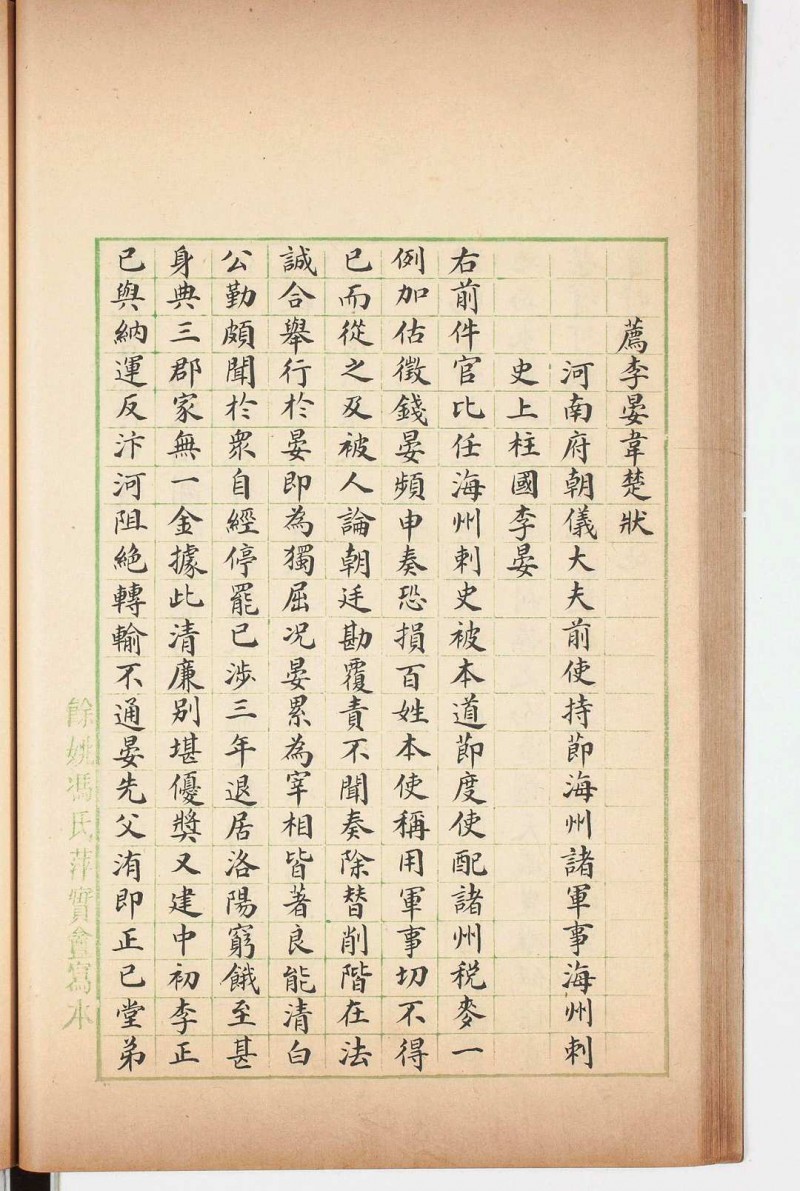 薦李晏韋楚狀
河南府朝儀大夫前使持節海州諸軍事海州刺
史上柱國李晏
右前件官比任海州刺史被本道節度使配諸州稅麥一
例加估徵錢晏頻申奏恐損百姓本使稱用軍事切不得
已而從之及被人論朝廷勘覆責不聞奏除替削階在法
誠合舉行於晏即為獨屈况晏累為宰相皆著良能清白
公勤頗聞於眾自經停罷已涉三年退居洛陽窮餓至甚
身典三郡家無一金據此清廉別堪優獎又建中初李正
已與納運反汴河阻絶轉輸不通晏先父洧即正已堂弟
餘姚馮氏萍實㑹寫本